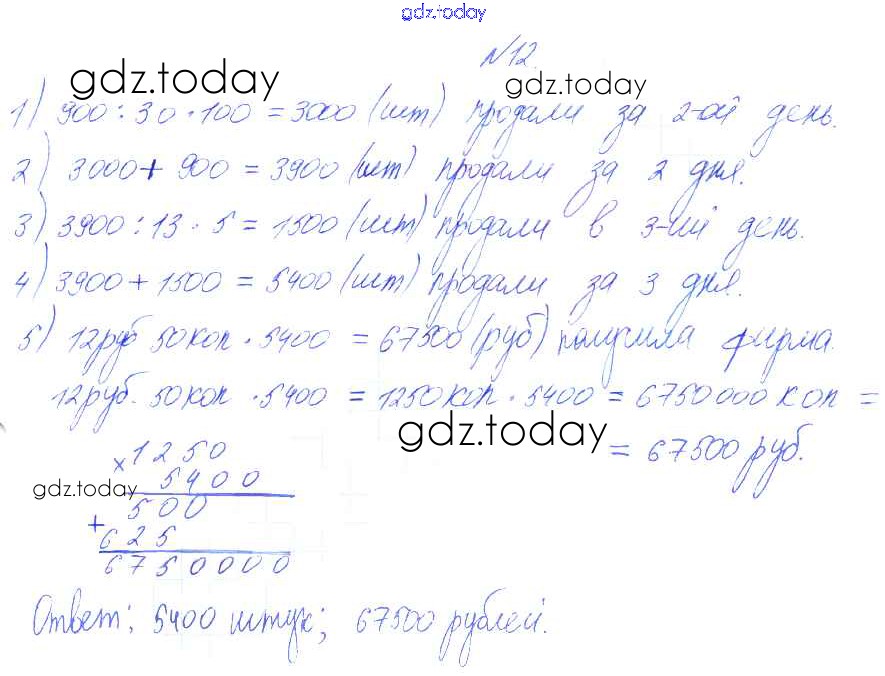 gdz.today
N12.
gdz.today gdz.today
1) 900 : 30 · 100 = 3000 (шт) продали за 2-ой день.
2) 3000 + 900 = 3900 (шт) продали за 2 дня.
3) 3900 : 13 · 5 = 1500 (шт) продали в 3-ий день.
4) 3900 + 1500 = 5400 (шт) продали за 3 дня.
5) 12 руб 50 коп · 5400 = 67500 (руб) получила фирма.
12 руб. 50 коп · 5400 = 1250 коп · 5400 = 6750000 коп =
gdz.today
= 67500 руб.
× 1250
5400
gdz.today
500
+ 625
6750000
Ответ: 5400 штук; 67500 рублей.